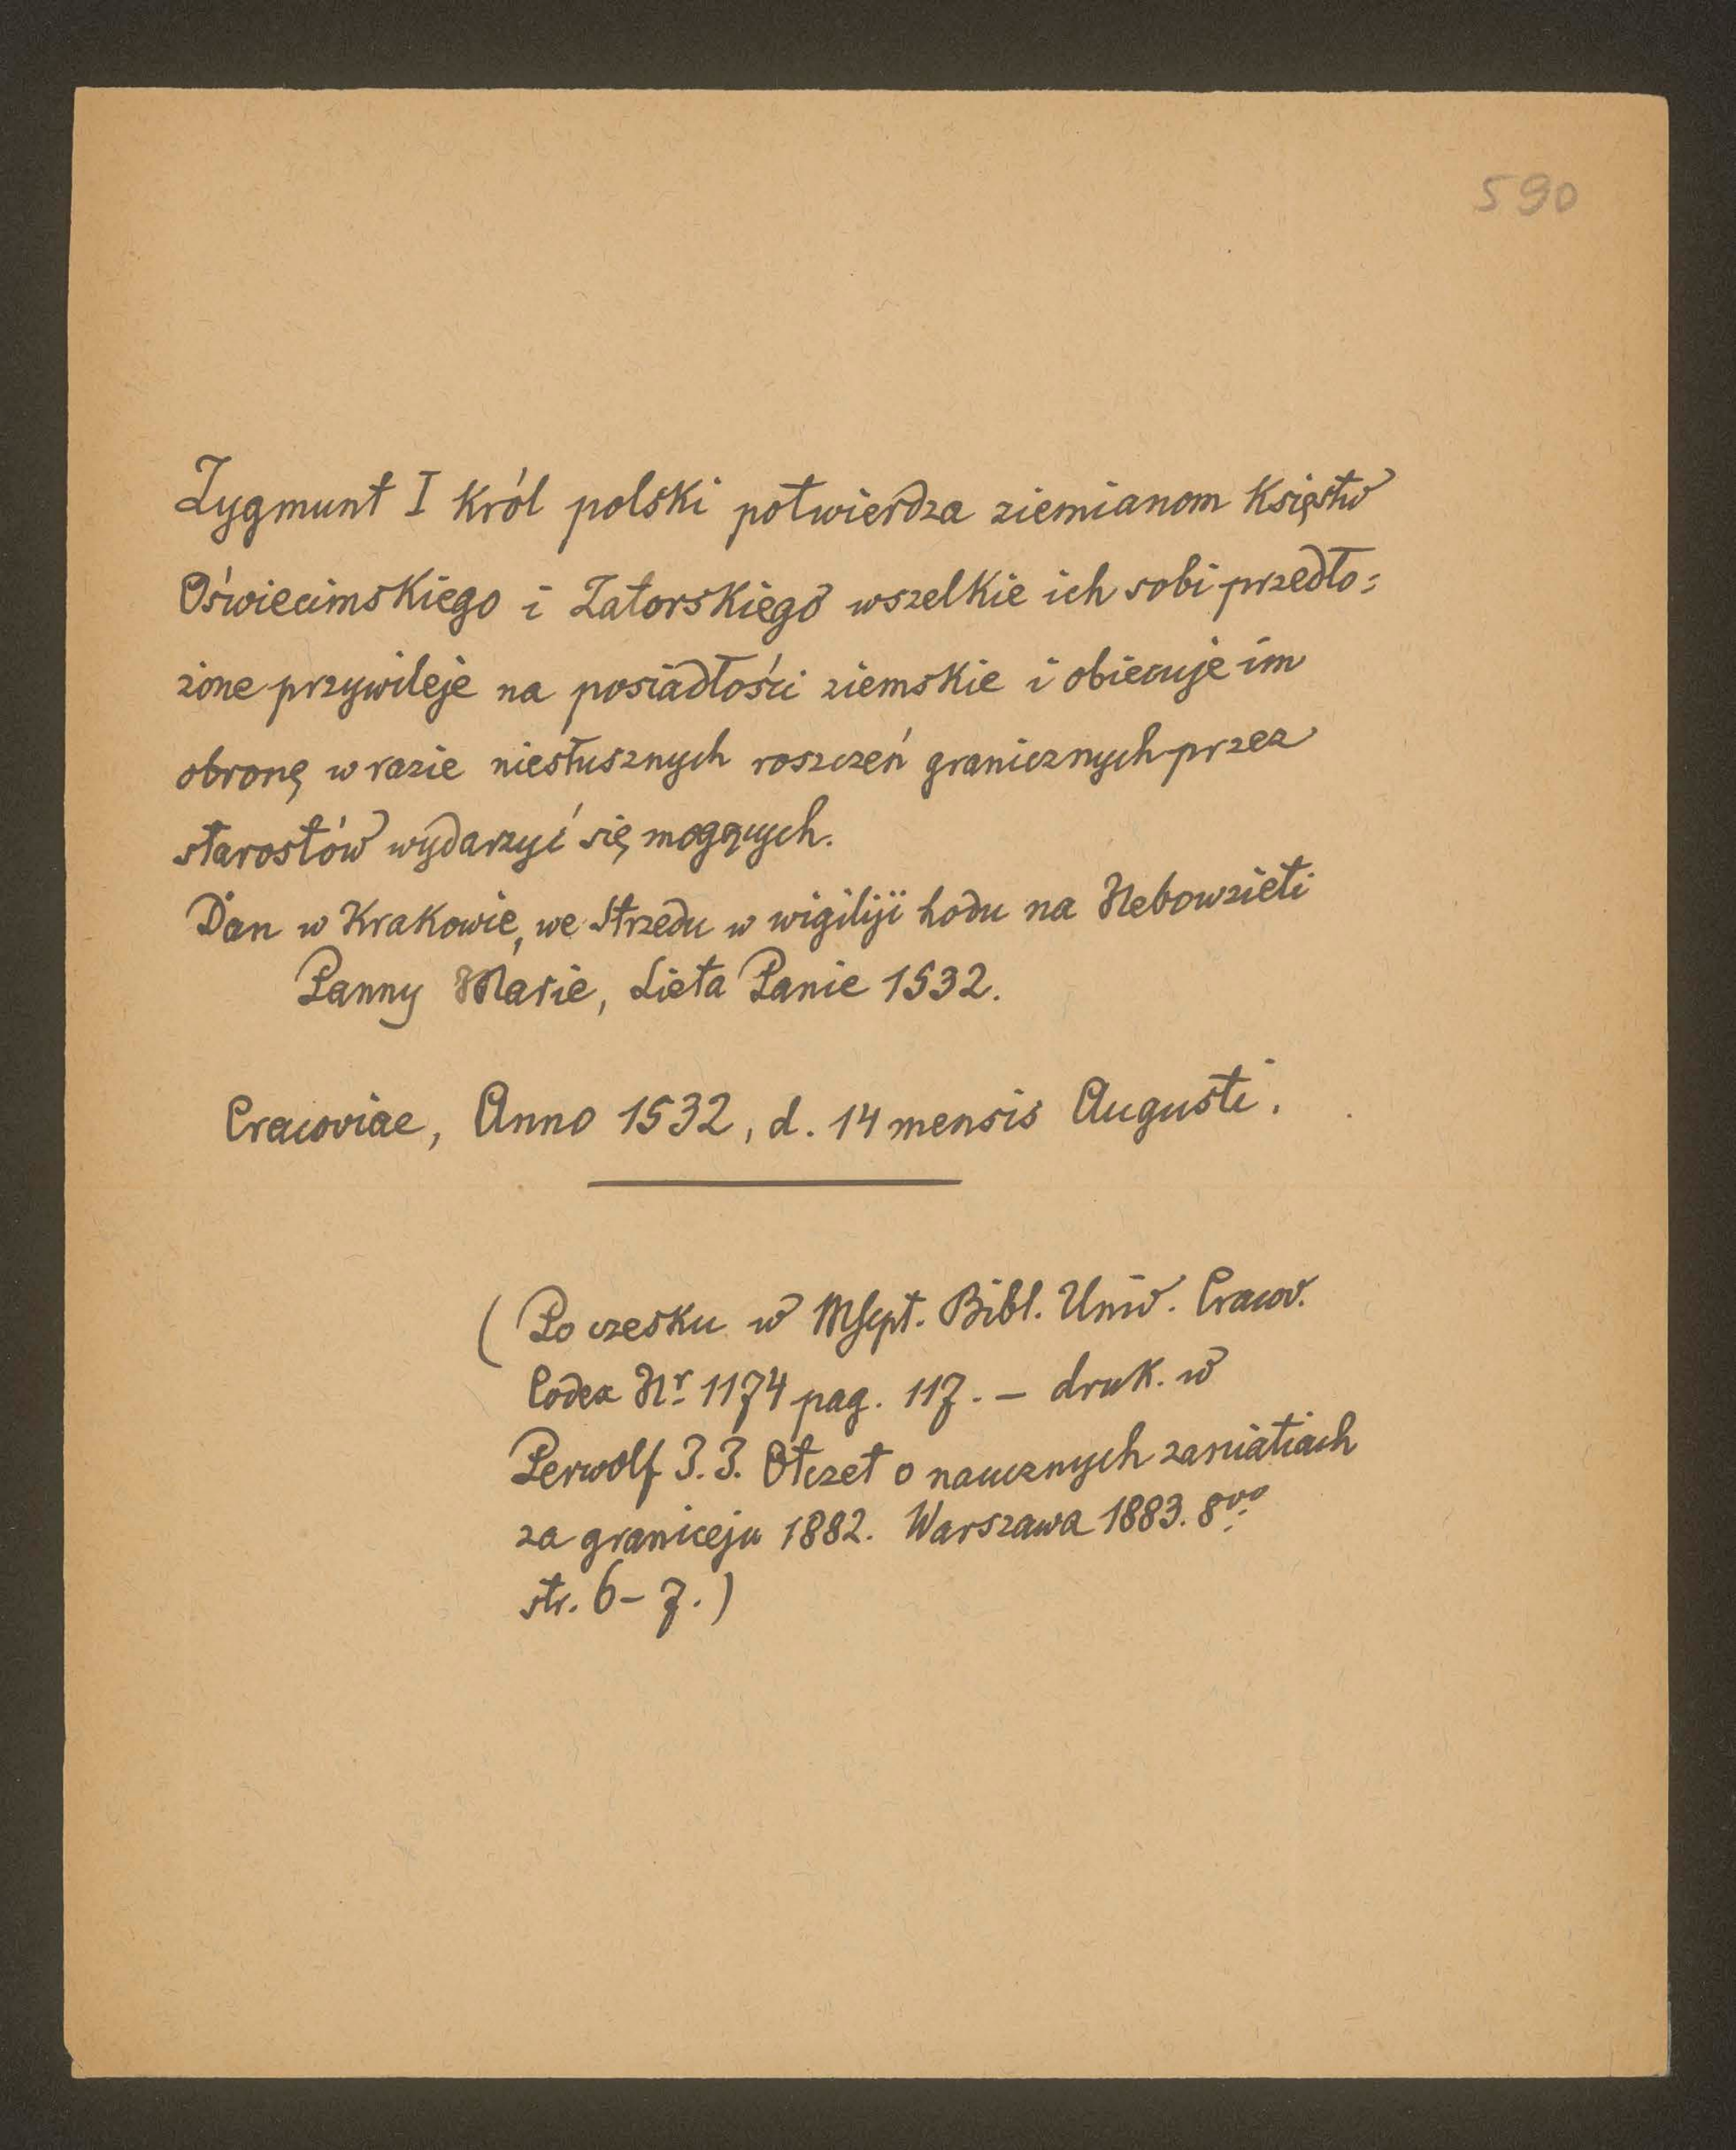 590
Zygmunt I Król polski potwierdza ziemianom Księstw
Oświecimskiego i Zatorskiego wszelkie ich sobi przedło=
zione przywileje na posiadłości ziemskie i obiecuje im
obronę w razie niesłusznych roszczeń granicznych przez
starostów wydarzyć się mogących.
Dan w Krakowie, we Strzedu w wigiliji hodu na Nebowzieti
Panny Marie, Lieta Panie 1532.
Cracoviae, Anno 1532, d. 14 mensis Augusti.
(Po czesku w Mscpt. Bibl. Uniw. Cracov.
Codex Nr. 1174 pag. 117. – druk. w
Perwolf J. J. Otczet o naucznych zaniatiach
za graniceju 1882. Warszawa 1883. 8vo
str. 6–7.)